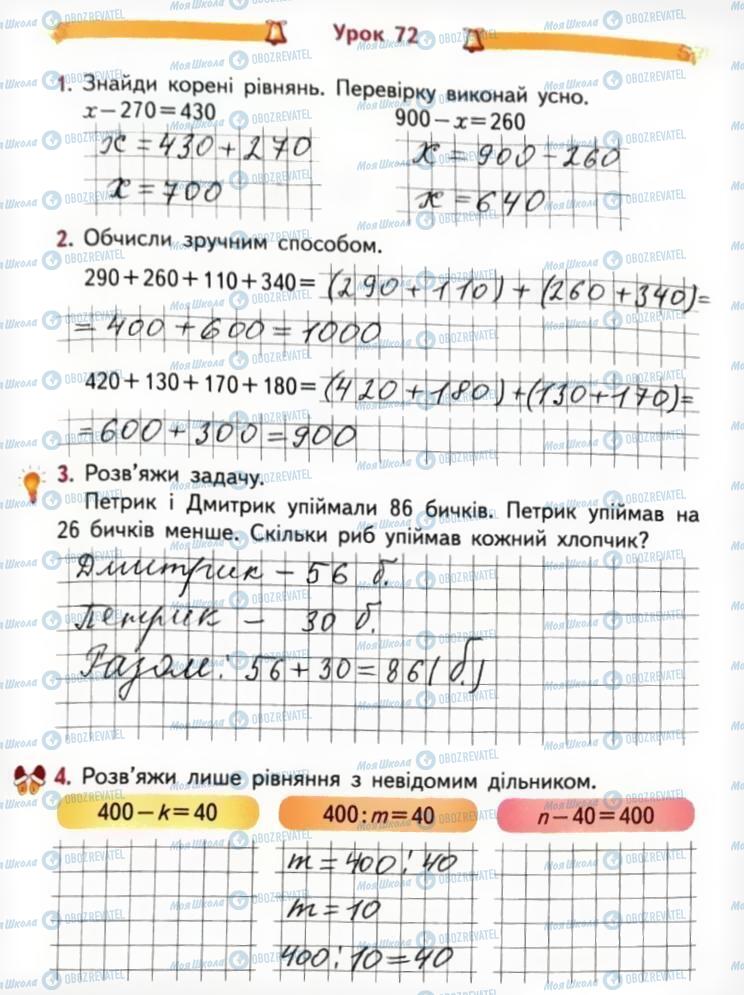 Урок 72
1. Знайди корені рівнянь. Перевірку виконай усно.
x − 270 = 430
900 − x = 260
x = 430 + 270
x = 900 − 260
x = 700
x = 640
2. Обчисли зручним способом.
290 + 260 + 110 + 340 = (290 + 110) + (260 + 340) =
= 400 + 600 = 1000
420 + 130 + 170 + 180 = (420 + 180) + (130 + 170) =
= 600 + 300 = 900
3. Розв'яжи задачу.
Петрик і Дмитрик упіймали 86 бичків. Петрик упіймав на
26 бичків менше. Скільки риб упіймав кожний хлопчик?
Дмитрик – 56 б.
Петрик – 30 б.
Разом: 56 + 30 = 86 (б.)
4. Розв'яжи лише рівняння з невідомим дільником.
400 − k = 40
400 : m = 40
n − 40 = 400
m = 400 : 40
m = 10
400 : 10 = 40